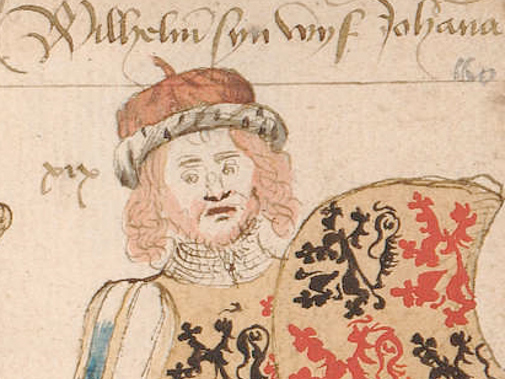 Wilhelm syn wyf Johana
xix